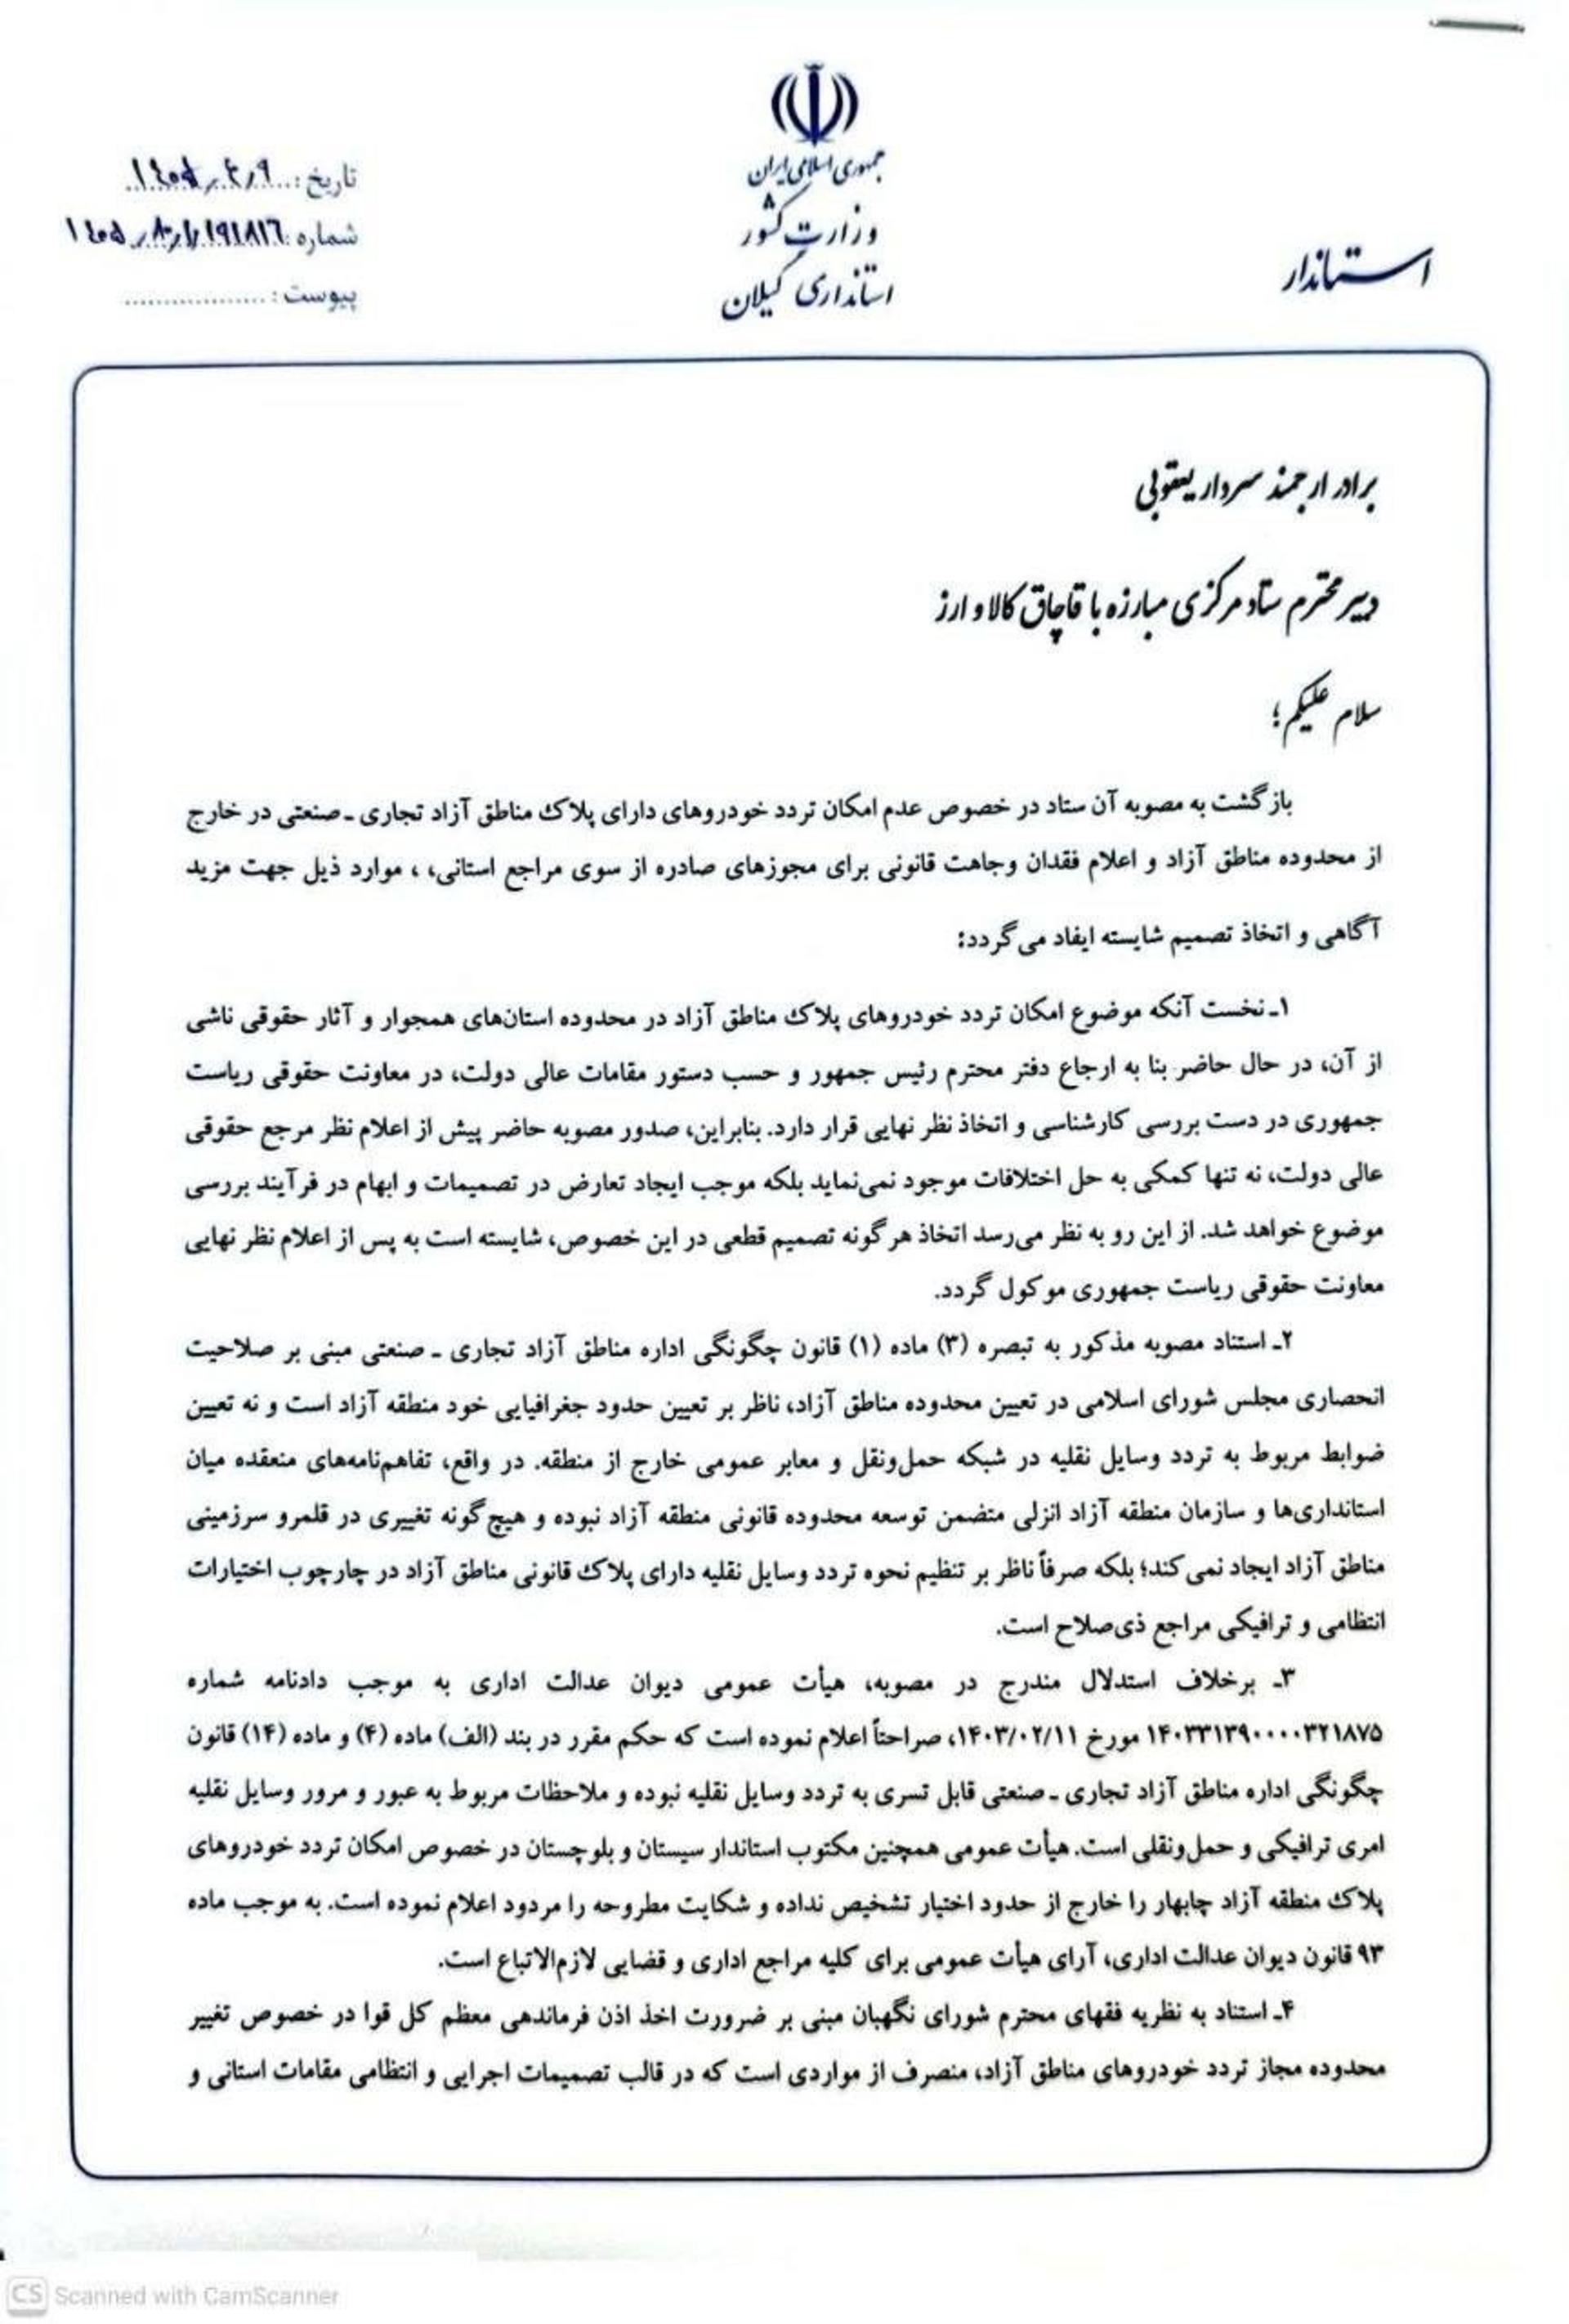 جمهوری اسلامی ایران
وزارت کشور
استانداری گیلان
استاندار
تاریخ:
شماره:
پیوست:
برادر ارجمند سردار یعقوبی
دبیر محترم ستاد مرکزی مبارزه با قاچاق کالا و ارز
سلام علیکم؛
بازگشت به مصوبه آن ستاد در خصوص عدم امکان تردد خودروهای دارای پلاک مناطق آزاد تجاری ـ صنعتی در خارج
از محدوده مناطق آزاد و اعلام فقدان وجاهت قانونی برای مجوزهای صادره از سوی مراجع استانی، ، موارد ذیل جهت مزید
آگاهی و اتخاذ تصمیم شایسته ایفاد می‌گردد:
۱ـ نخست آنکه موضوع امکان تردد خودروهای پلاک مناطق آزاد در محدوده استان‌های همجوار و آثار حقوقی ناشی
از آن، در حال حاضر بنا به ارجاع دفتر محترم رئیس جمهور و حسب دستور مقامات عالی دولت، در معاونت حقوقی ریاست
جمهوری در دست بررسی کارشناسی و اتخاذ نظر نهایی قرار دارد. بنابراین، صدور مصوبه حاضر پیش از اعلام نظر مرجع حقوقی
عالی دولت، نه تنها کمکی به حل اختلافات موجود نمی‌نماید بلکه موجب ایجاد تعارض در تصمیمات و ابهام در فرآیند بررسی
موضوع خواهد شد. از این رو به نظر می‌رسد اتخاذ هرگونه تصمیم قطعی در این خصوص، شایسته است به پس از اعلام نظر نهایی
معاونت حقوقی ریاست جمهوری موکول گردد.
۲ـ استناد مصوبه مذکور به تبصره (۳) ماده (۱) قانون چگونگی اداره مناطق آزاد تجاری ـ صنعتی مبنی بر صلاحیت
انحصاری مجلس شورای اسلامی در تعیین محدوده مناطق آزاد، ناظر بر تعیین حدود جغرافیایی خود منطقه آزاد است و نه تعیین
ضوابط مربوط به تردد وسایل نقلیه در شبکه حمل‌ونقل و معابر عمومی خارج از منطقه. در واقع، تفاهم‌نامه‌های منعقده میان
استانداری‌ها و سازمان منطقه آزاد انزلی متضمن توسعه محدوده قانونی منطقه آزاد نبوده و هیچ‌گونه تغییری در قلمرو سرزمینی
مناطق آزاد ایجاد نمی‌کند؛ بلکه صرفاً ناظر بر تنظیم نحوه تردد وسایل نقلیه دارای پلاک قانونی مناطق آزاد در چارچوب اختیارات
انتظامی و ترافیکی مراجع ذی‌صلاح است.
۳ـ برخلاف استدلال مندرج در مصوبه، هیأت عمومی دیوان عدالت اداری به موجب دادنامه شماره
۱۴۰۳۳۱۳۹۰۰۰۰۳۲۱۸۷۵ مورخ ۱۴۰۳/۰۲/۱۱، صراحتاً اعلام نموده است که حکم مقرر در بند (الف) ماده (۴) و ماده (۱۴) قانون
چگونگی اداره مناطق آزاد تجاری ـ صنعتی قابل تسری به تردد وسایل نقلیه نبوده و ملاحظات مربوط به عبور و مرور وسایل نقلیه
امری ترافیکی و حمل‌ونقلی است. هیأت عمومی همچنین مکتوب استاندار سیستان و بلوچستان در خصوص امکان تردد خودروهای
پلاک منطقه آزاد چابهار را خارج از حدود اختیار تشخیص نداده و شکایت مطروحه را مردود اعلام نموده است. به موجب ماده
۹۳ قانون دیوان عدالت اداری، آرای هیأت عمومی برای کلیه مراجع اداری و قضایی لازم‌الاتباع است.
۴ـ استناد به نظریه فقهای محترم شورای نگهبان مبنی بر ضرورت اخذ اذن فرماندهی معظم کل قوا در خصوص تغییر
محدوده مجاز تردد خودروهای مناطق آزاد، منصرف از مواردی است که در قالب تصمیمات اجرایی و انتظامی مقامات استانی و
CS Scanned with CamScanner